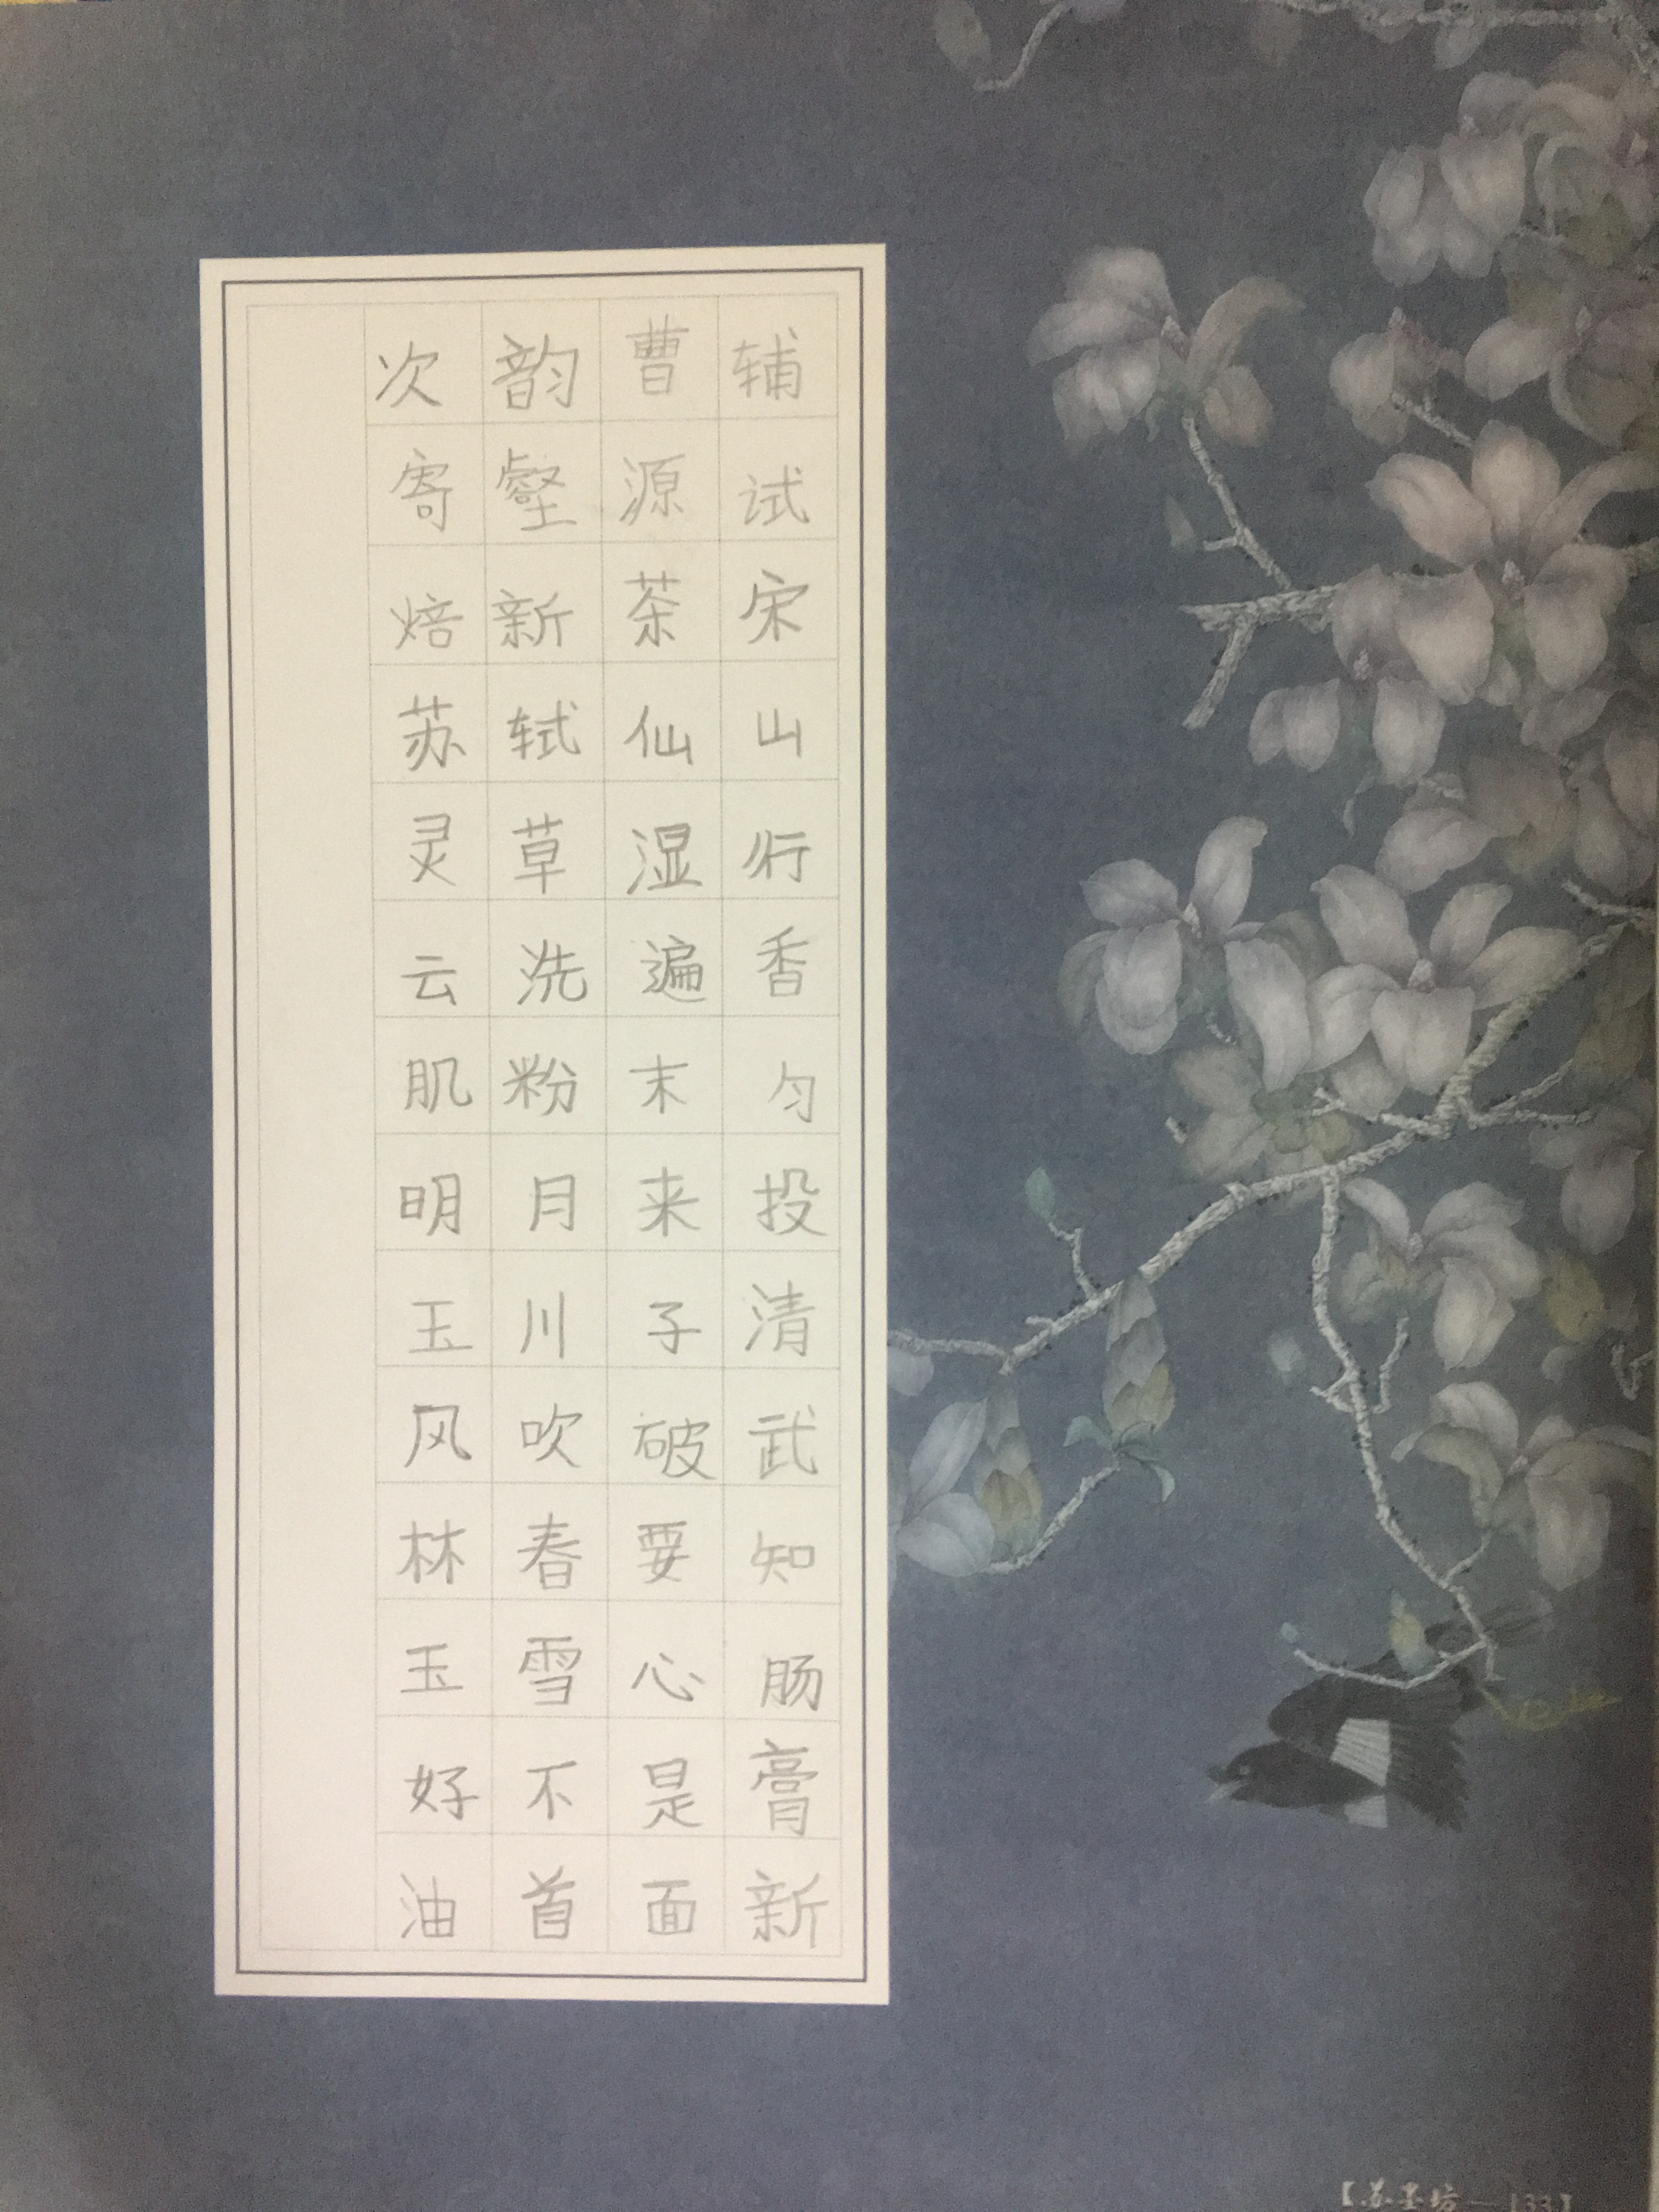 次韵曹辅
寄壑源试
焙新茶宋
苏轼仙山
灵草湿行
云洗遍香
肌粉末匀
明月来投
玉川子清
风吹破武
林春要知
玉雪心肠
好不是膏
油首面新